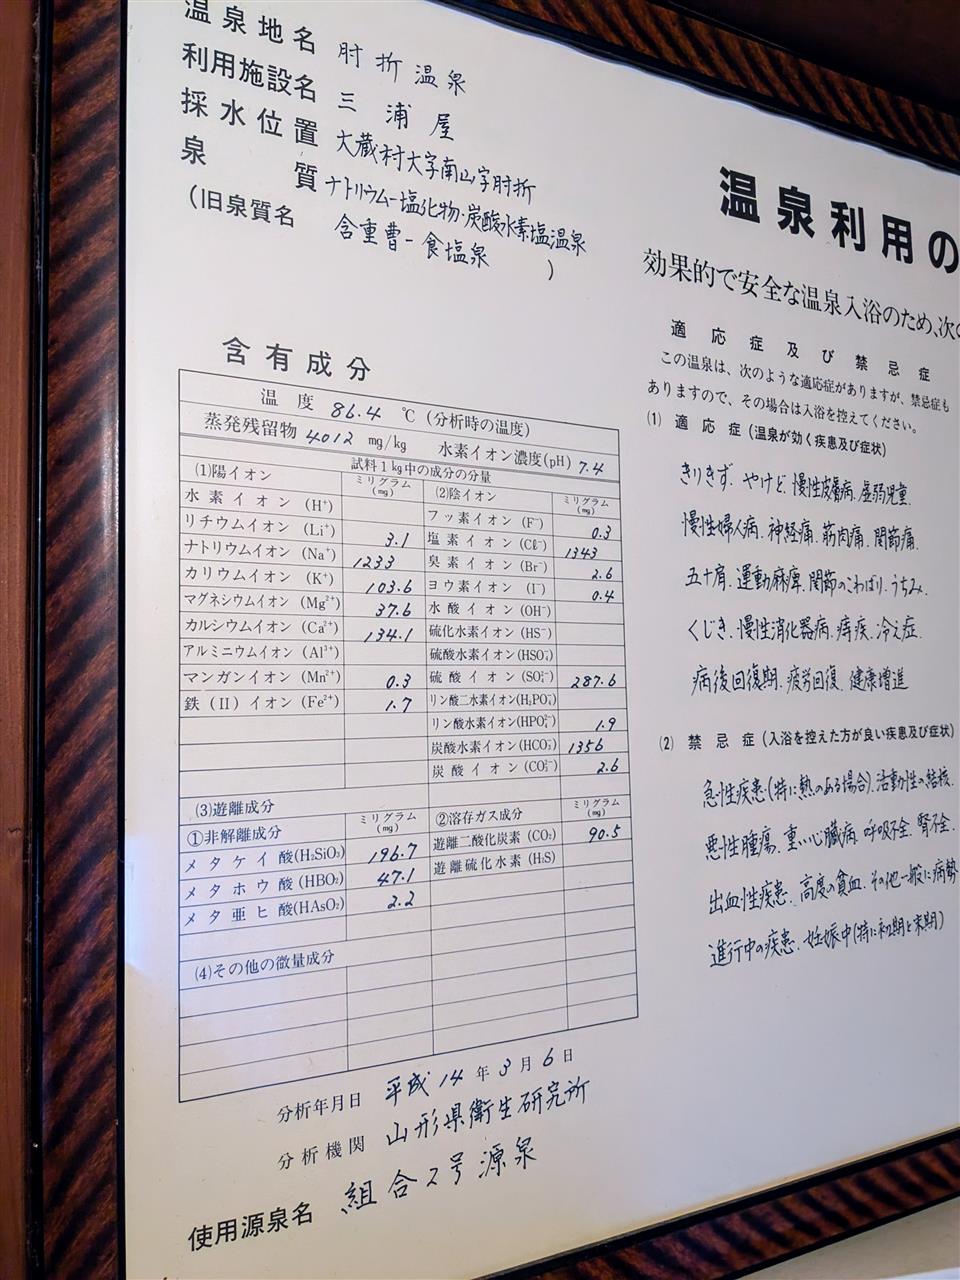 温泉地名 肘折温泉
利用施設名 三浦屋
採水位置 大蔵村大字南山字肘折
泉質 ナトリウム-塩化物・炭酸水素塩温泉
(旧泉質名 含重曹-食塩泉 )
含有成分
温度 86.4 ℃ (分析時の温度)
蒸発残留物 4012 mg/kg 水素イオン濃度(pH) 7.4
試料1kg中の成分の分量
(1)陽イオン ミリグラム(mg)
水素イオン (H⁺)
リチウムイオン (Li⁺) 3.1
ナトリウムイオン (Na⁺) 1233
カリウムイオン (K⁺) 103.6
マグネシウムイオン (Mg²⁺) 37.6
カルシウムイオン (Ca²⁺) 134.1
アルミニウムイオン (Al³⁺)
マンガンイオン (Mn²⁺) 0.3
鉄(II)イオン (Fe²⁺) 1.7
(2)陰イオン ミリグラム(mg)
フッ素イオン (F⁻) 0.3
塩素イオン (Cℓ⁻) 1343
臭素イオン (Br⁻) 2.6
ヨウ素イオン (I⁻) 0.4
水酸イオン (OH⁻)
硫化水素イオン (HS⁻)
硫酸水素イオン (HSO₄⁻)
硫酸イオン (SO₄²⁻) 287.6
リン酸二水素イオン (H₂PO₄⁻)
リン酸水素イオン (HPO₄²⁻) 1.9
炭酸水素イオン (HCO₃⁻) 1356
炭酸イオン (CO₃²⁻) 2.6
(3)遊離成分
①非解離成分 ミリグラム(mg)
メタケイ酸 (H₂SiO₃) 196.7
メタホウ酸 (HBO₂) 47.1
メタ亜ヒ酸 (HAsO₂) 2.2
②溶存ガス成分 ミリグラム(mg)
遊離二酸化炭素 (CO₂) 90.5
遊離硫化水素 (H₂S)
(4)その他の微量成分
分析年月日 平成14年3月6日
分析機関 山形県衛生研究所
使用源泉名 組合2号源泉
温泉利用の
効果的で安全な温泉入浴のため、次の
適応症及び禁忌症
この温泉は、次のような適応症がありますが、禁忌症も
ありますので、その場合は入浴を控えてください。
(1) 適応症 (温泉が効く疾患及び症状)
きりきず. やけど. 慢性皮膚病. 虚弱児童
慢性婦人病. 神経痛. 筋肉痛. 関節痛.
五十肩. 運動麻痺. 関節のこわばり. うちみ.
くじき. 慢性消化器病. 痔疾. 冷え症.
病後回復期. 疲労回復. 健康増進
(2) 禁忌症 (入浴を控えた方が良い疾患及び症状)
急性疾患(特に熱のある場合). 活動性の結核.
悪性腫瘍. 重い心臓病. 呼吸不全. 腎不全.
出血性疾患. 高度の貧血. その他一般に病勢
進行中の疾患. 妊娠中(特に初期と末期)